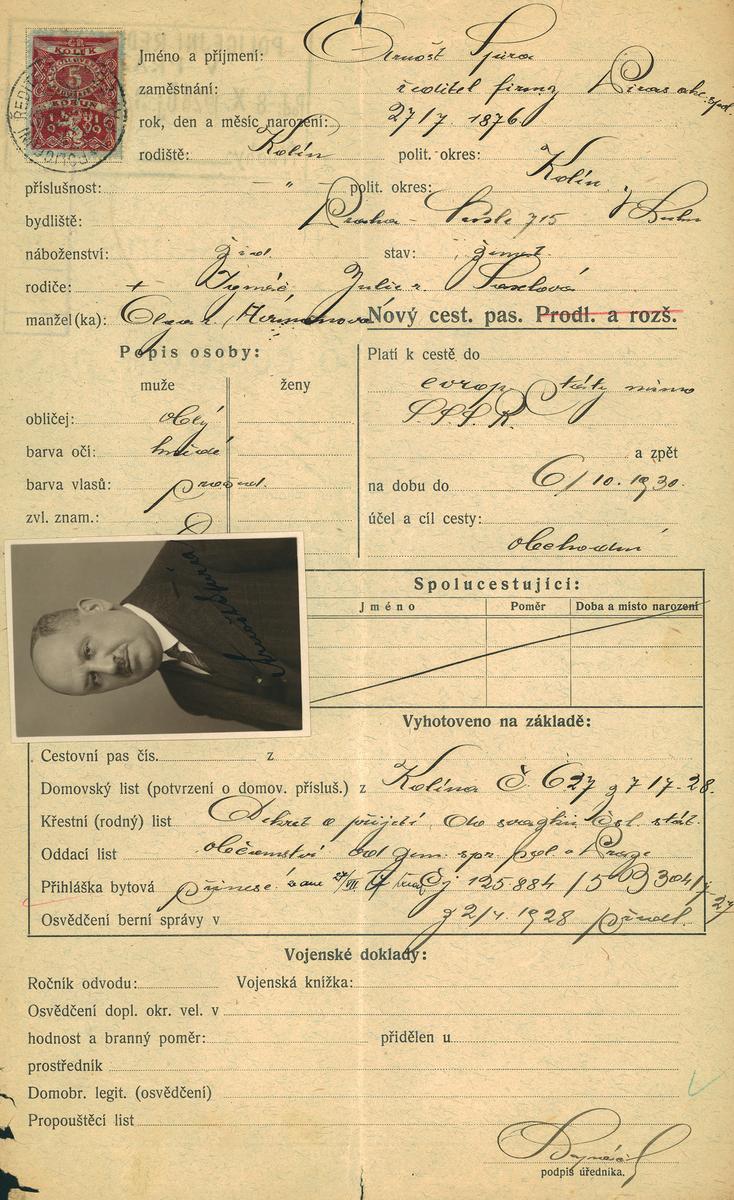 KOLEK
5
Jméno a příjmení: Arnošt Spira
zaměstnání: ředitel firmy Piras akc. spol.
rok, den a měsíc narození: 27/7. 1876.
rodiště: Kolín polit. okres: Kolín
příslušnost: — " polit. okres:
bydliště: Praha - 715
náboženství: žid. stav: ženat.
rodiče: + Ignác Julie r.
manžel(ka): Olga r. Heřmanová Nový cest. pas. Prodl. a rozš.
Popis osoby: Platí k cestě do
muže ženy evrop. státy mimo
S.S.S.R.
obličej: oblý
barva očí: hnědé a zpět
barva vlasů: na dobu do 6/10. 1930.
zvl. znam.: účel a cíl cesty:
obchodní
Spolucestující:
Jméno Poměr Doba a místo narození
Vyhotoveno na základě:
Cestovní pas čís. z
Domovský list (potvrzení o domov. přísluš.) z Kolína Č. 627 z 7 17.-28.
Křestní (rodný) list Dekret o přijetí do svazku čsl. stát.
Oddací list občanství od zem. spr. pol. v Praze
Přihláška bytová přinese čj 125.884 /5
Osvědčení berní správy v z 2/4. 1928
Vojenské doklady:
Ročník odvodu: Vojenská knížka:
Osvědčení dopl. okr. vel. v
hodnost a branný poměr: přidělen u
prostředník
Domobr. legit. (osvědčení)
Propouštěcí list
podpis úředníka.